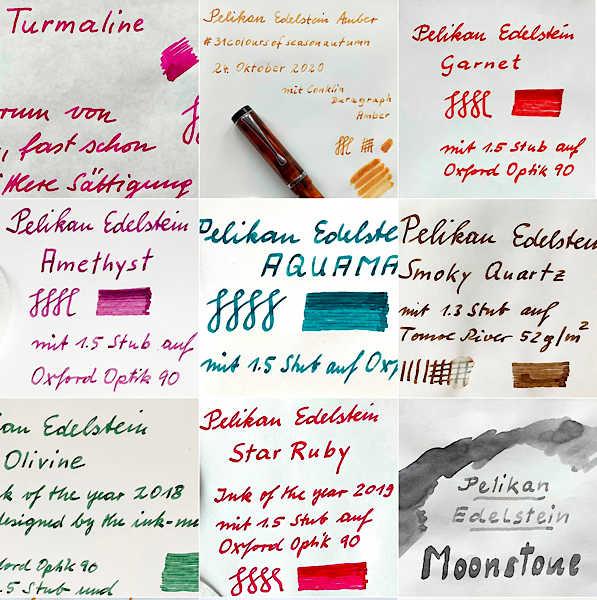 Turmaline
rum von
, fast schon
ttlere Sättigung
Pelikan Edelstein Amber
#31coloursofseasonautumn
24. Oktober 2020
mit Conklin
Duragraph
Amber
Pelikan Edelstein
Garnet
mit 1.5 Stub auf
Oxford Optik 90
Pelikan Edelstein
Amethyst
mit 1.5 Stub auf
Oxford Optik 90
Pelikan Edelste
AQUAMA
mit 1.5 Stub auf Ox
Pelikan Edelstein
Smoky Quartz
mit 1.3 Stub auf
Tomoe River 52g/m²
an Edelstein
Olivine
k of the year 2018
designed by the ink-m
ord Optik 90
.5 Stub und
Pelikan Edelstein
Star Ruby
Ink of the year 2019
mit 1.5 Stub auf
Oxford Optik 90
Pelikan
Edelstein
Moonstone